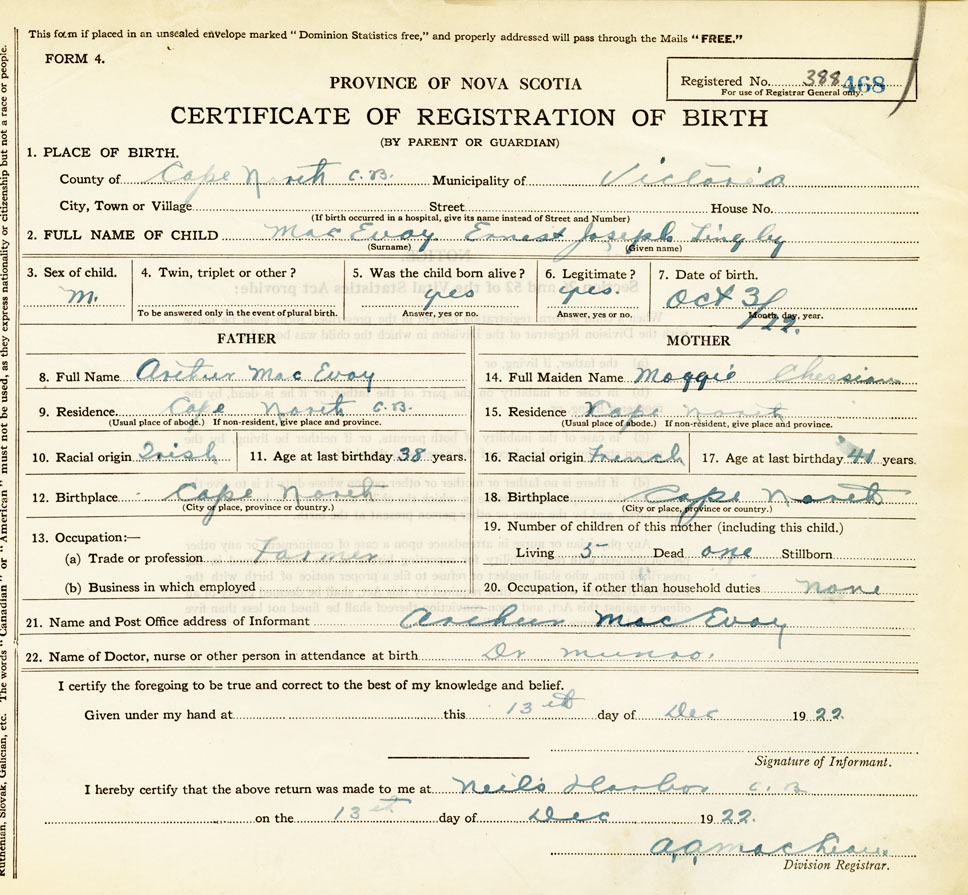 This form if placed in an unsealed envelope marked "Dominion Statistics free," and properly addressed will pass through the Mails "FREE."
FORM 4.
Registered No. 388 468
For use of Registrar General only.
PROVINCE OF NOVA SCOTIA
CERTIFICATE OF REGISTRATION OF BIRTH
(BY PARENT OR GUARDIAN)
1. PLACE OF BIRTH.
County of Cape North C.B. Municipality of Victoria
City, Town or Village Street House No.
(If birth occurred in a hospital, give its name instead of Street and Number)
2. FULL NAME OF CHILD MacEvoy Ernest Joseph Tingley
(Surname) (Given name)
3. Sex of child. 4. Twin, triplet or other? 5. Was the child born alive? 6. Legitimate? 7. Date of birth.
M. yes yes. Oct 31/22.
To be answered only in the event of plural birth. Answer, yes or no. Answer, yes or no. Month, day, year.
FATHER
8. Full Name Arthur MacEvoy
9. Residence. Cape North C.B.
(Usual place of abode.) If non-resident, give place and province.
10. Racial origin Irish 11. Age at last birthday 38 years.
12. Birthplace Cape North
(City or place, province or country.)
13. Occupation:—
(a) Trade or profession Farmer
(b) Business in which employed
MOTHER
14. Full Maiden Name Maggie
15. Residence Cape North
(Usual place of abode.) If non-resident, give place and province.
16. Racial origin French 17. Age at last birthday 41 years.
18. Birthplace Cape North
(City or place, province or country.)
19. Number of children of this mother (including this child.)
Living 5 Dead one Stillborn
20. Occupation, if other than household duties none
21. Name and Post Office address of Informant Arthur MacEvoy
22. Name of Doctor, nurse or other person in attendance at birth Dr Munro.
I certify the foregoing to be true and correct to the best of my knowledge and belief.
Given under my hand at this 13th day of Dec 1922.
Signature of Informant.
I hereby certify that the above return was made to me at Neil's Harbor C.B
on the 13th day of Dec 1922.
A.A. MacLean
Division Registrar.
The words "Canadian" or "American" must not be used, as they express nationality or citizenship but not a race or people.
Ruthenian, Slovak, Galician, etc.